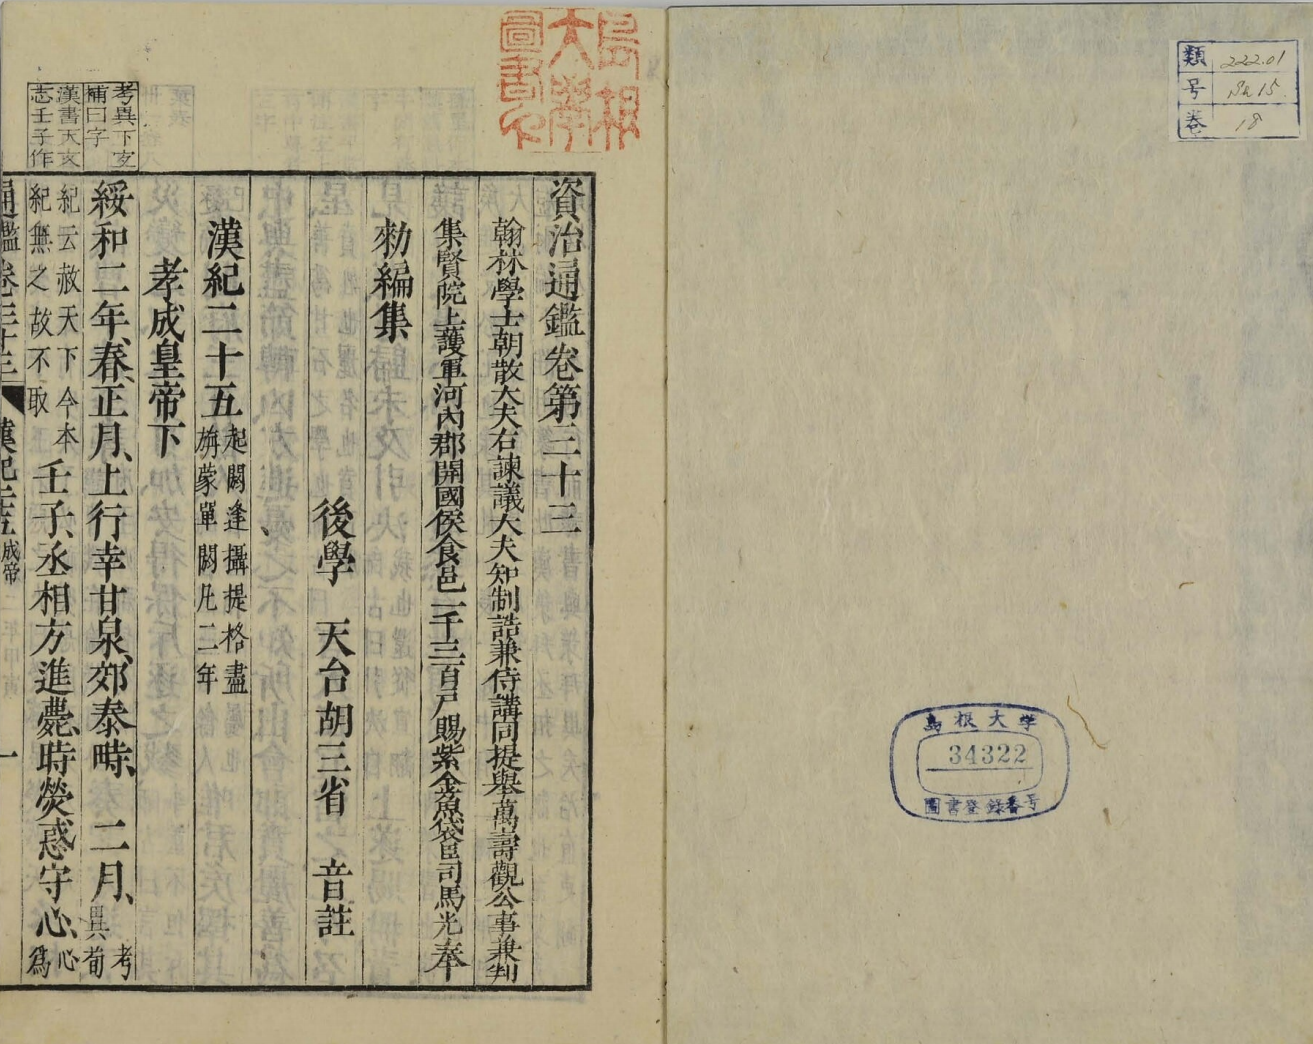 類 222.01
号 Su 15
巻 18
島根大学
34322
圖書登録番号
島根
大學
圖書印
資治通鑑卷第三十三
翰林學士朝散大夫右諫議大夫知制誥兼侍講同提舉萬壽觀公事兼判
集賢院上護軍河內郡開國侯食邑一千三百戶賜紫金魚袋臣司馬光奉
勑編集
後學 天台胡三省 音註
漢紀二十五起閼逢攝提格盡
旃蒙單閼凡二年
孝成皇帝下
考異下文
補曰字
漢書天文
志壬子作
綏和二年、春、正月、上行幸甘泉、郊泰畤、 二月、考
異荀
紀云赦天下今本
紀無之故不取
壬子、丞相方進薨、時熒惑守心、心
爲
通鑑卷三十三 漢紀二十五 成帝 一